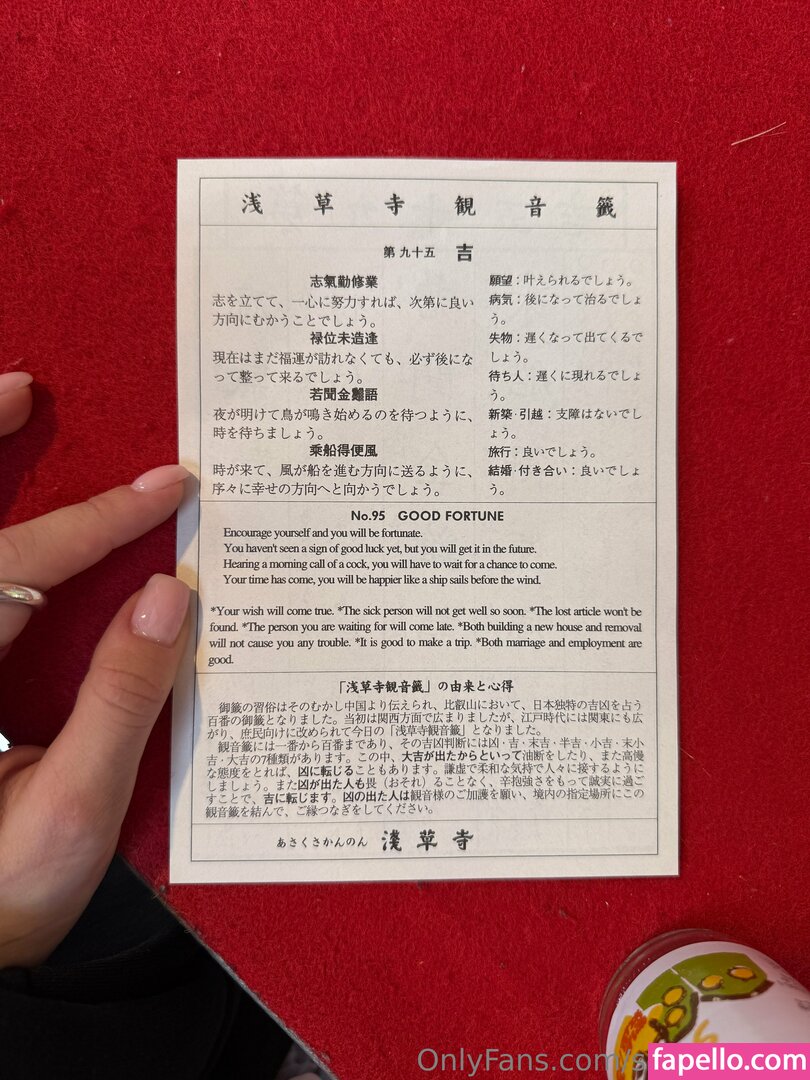 浅草寺観音籤
第九十五 吉
志氣勤修業
志を立てて、一心に努力すれば、次第に良い
方向にむかうことでしょう。
禄位未造逢
現在はまだ福運が訪れなくても、必ず後にな
って整って来るでしょう。
若聞金雞語
夜が明けて鳥が鳴き始めるのを待つように、
時を待ちましょう。
乗船得便風
時が来て、風が船を進む方向に送るように、
序々に幸せの方向へと向かうでしょう。
願望：叶えられるでしょう。
病気：後になって治るでしょ
う。
失物：遅くなって出てくるで
しょう。
待ち人：遅くに現れるでしょ
う。
新築・引越：支障はないでし
ょう。
旅行：良いでしょう。
結婚・付き合い：良いでしょ
う。
No.95 GOOD FORTUNE
Encourage yourself and you will be fortunate.
You haven't seen a sign of good luck yet, but you will get it in the future.
Hearing a morning call of a cock, you will have to wait for a chance to come.
Your time has come, you will be happier like a ship sails before the wind.
*Your wish will come true. *The sick person will not get well so soon. *The lost article won't be
found. *The person you are waiting for will come late. *Both building a new house and removal
will not cause you any trouble. *It is good to make a trip. *Both marriage and employment are
good.
「浅草寺観音籤」の由来と心得
御籤の習俗はそのむかし中国より伝えられ、比叡山において、日本独特の吉凶を占う
百番の御籤となりました。当初は関西方面で広まりましたが、江戸時代には関東にも広
がり、庶民向けに改められて今日の「浅草寺観音籤」となりました。
観音籤には一番から百番まであり、その吉凶判断には凶・吉・末吉・半吉・小吉・末小
吉・大吉の7種類があります。この中、大吉が出たからといって油断をしたり、また高慢
な態度をとれば、凶に転じることもあります。謙虚で柔和な気持で人々に接するように
しましょう。また凶が出た人も畏（おそれ）ることなく、辛抱強さをもって誠実に過ご
すことで、吉に転じます。凶の出た人は観音様のご加護を願い、境内の指定場所にこの
観音籤を結んで、ご縁つなぎをしてください。
あさくさかんのん 淺草寺
OnlyFans.com/s
fapello.com